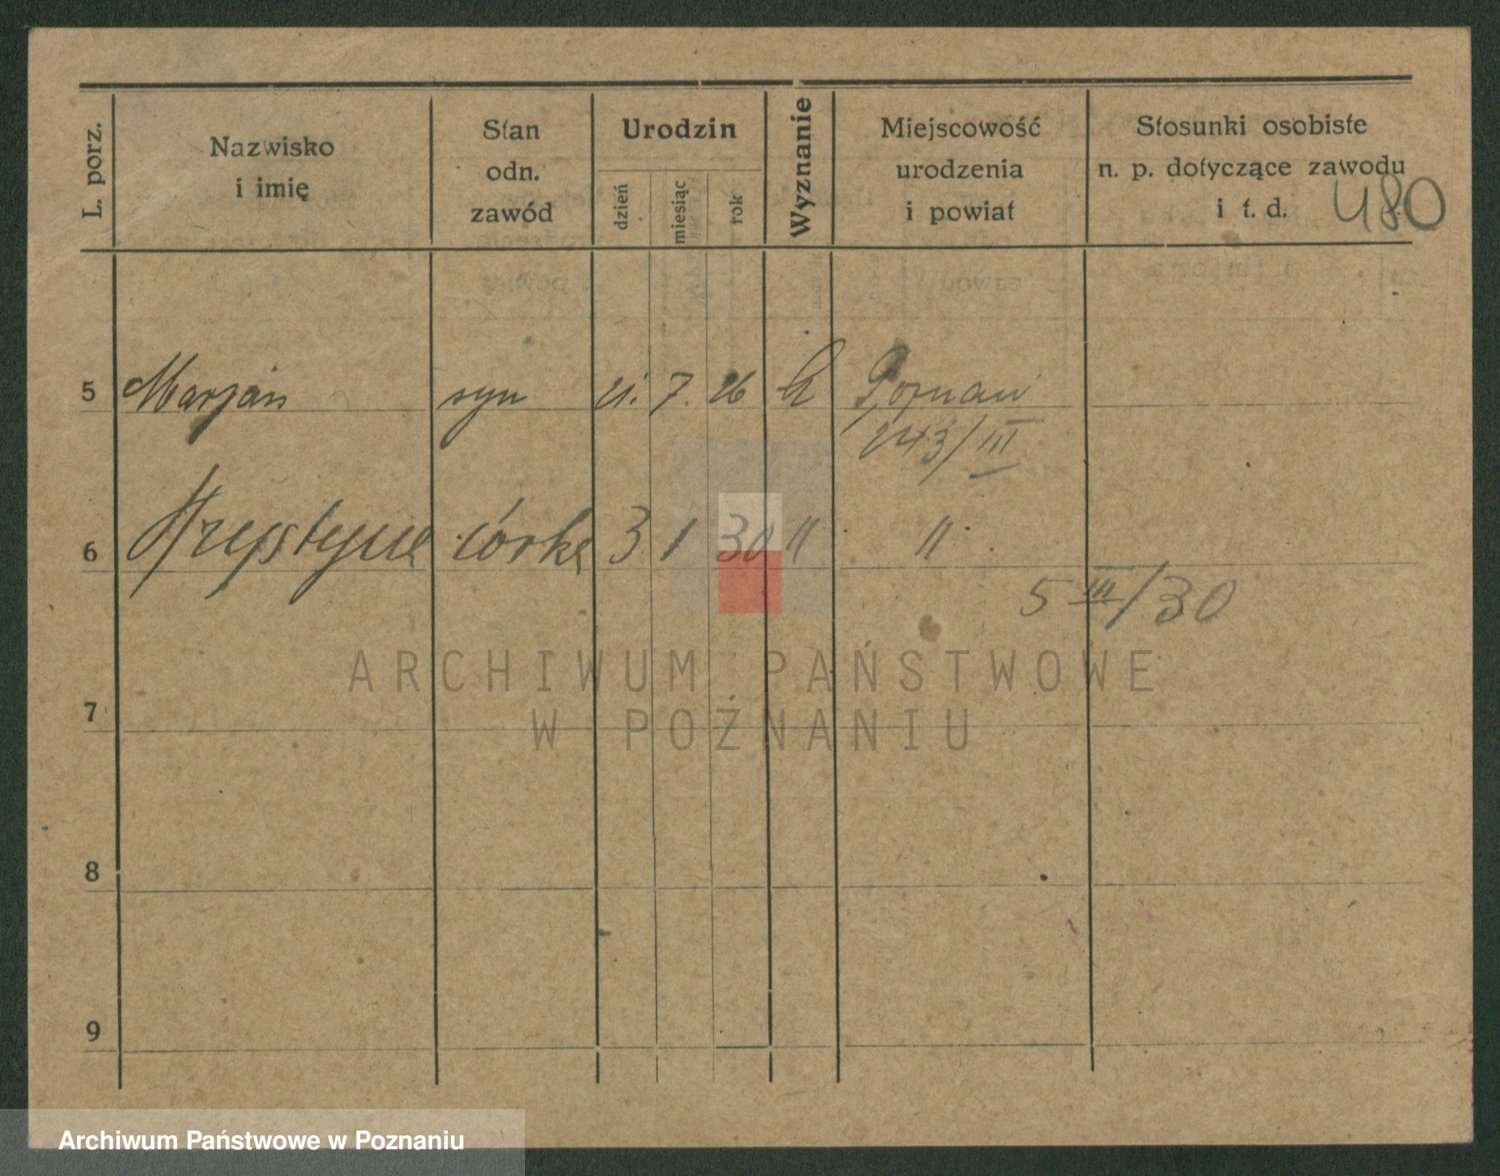 L. porz.
Nazwisko
i imię
Stan
odn.
zawód
Urodzin
dzień
miesiąc
rok
Wyznanie
Miejscowość
urodzenia
i powiat
Stosunki osobiste
n. p. dotyczące zawodu
i t. d.
480
5 Marjan syn 21. 7. 26 k Poznań
243/III
6 Krystyna córka 3 1 30 " "
5 III/30
7
8
9
ARCHIWUM PAŃSTWOWE
W POZNANIU
Archiwum Państwowe w Poznaniu